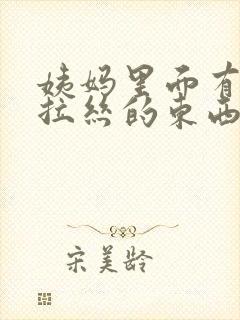 姨妈里面有
拉丝的东西
宋美龄